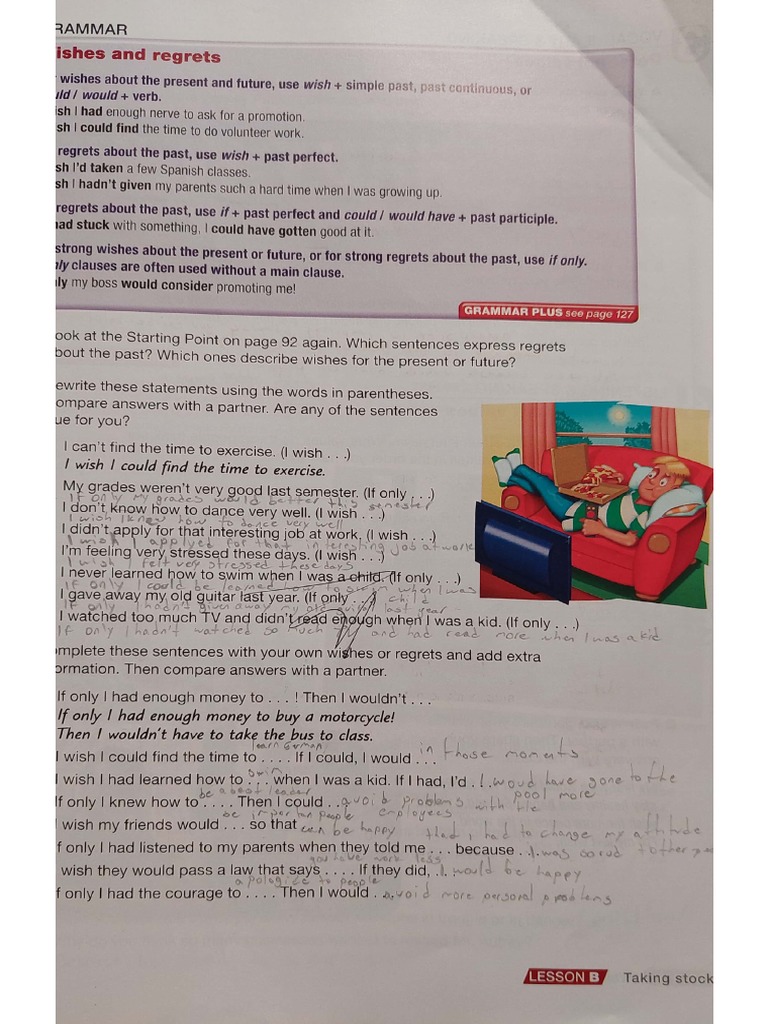 RAMMAR
ishes and regrets
wishes about the present and future, use wish + simple past, past continuous, or
uld / would + verb.
sh I had enough nerve to ask for a promotion.
sh I could find the time to do volunteer work.
regrets about the past, use wish + past perfect.
sh I'd taken a few Spanish classes.
sh I hadn't given my parents such a hard time when I was growing up.
regrets about the past, use if + past perfect and could / would have + past participle.
had stuck with something, I could have gotten good at it.
strong wishes about the present or future, or for strong regrets about the past, use if only.
nly clauses are often used without a main clause.
ly my boss would consider promoting me!
GRAMMAR PLUS see page 127
ook at the Starting Point on page 92 again. Which sentences express regrets
bout the past? Which ones describe wishes for the present or future?
ewrite these statements using the words in parentheses.
ompare answers with a partner. Are any of the sentences
ue for you?
I can't find the time to exercise. (I wish . . .)
I wish I could find the time to exercise.
My grades weren't very good last semester. (If only . . .)
If only my grades would better this semester
I don't know how to dance very well. (I wish . . .)
I wish I knew how to dance very well
I didn't apply for that interesting job at work. (I wish . . .)
I wish I applyed for that interesting job at work
I'm feeling very stressed these days. (I wish . . .)
I wish I felt very stressed these days
I never learned how to swim when I was a child. (If only . . .)
If only I could be learned how to swim when I was
a child
I gave away my old guitar last year. (If only . . .)
If only I hadn't given away my old guitar last year
I watched too much TV and didn't read enough when I was a kid. (If only . . .)
If only I hadn't watched so much TV and had read more when I was a kid
omplete these sentences with your own wishes or regrets and add extra
ormation. Then compare answers with a partner.
If only I had enough money to . . . ! Then I wouldn't . . .
If only I had enough money to buy a motorcycle!
Then I wouldn't have to take the bus to class.
learn German
I wish I could find the time to . . . . If I could, I would . . . in those moments
swim
I wish I had learned how to . . . when I was a kid. If I had, I'd . . . woud have gone to the
pool more
be a best leader
If only I knew how to . . . . Then I could . . . avoib problems with the
employees
be importan people
wish my friends would . . . so that can be happy
that I had to change my attitude
f only I had listened to my parents when they told me . . . because . . . I was
you have work less
wish they would pass a law that says . . . . If they did, . . . I would be happy
apologize to people
f only I had the courage to . . . . Then I would . . . avoid more personal problems
LESSON B Taking stock